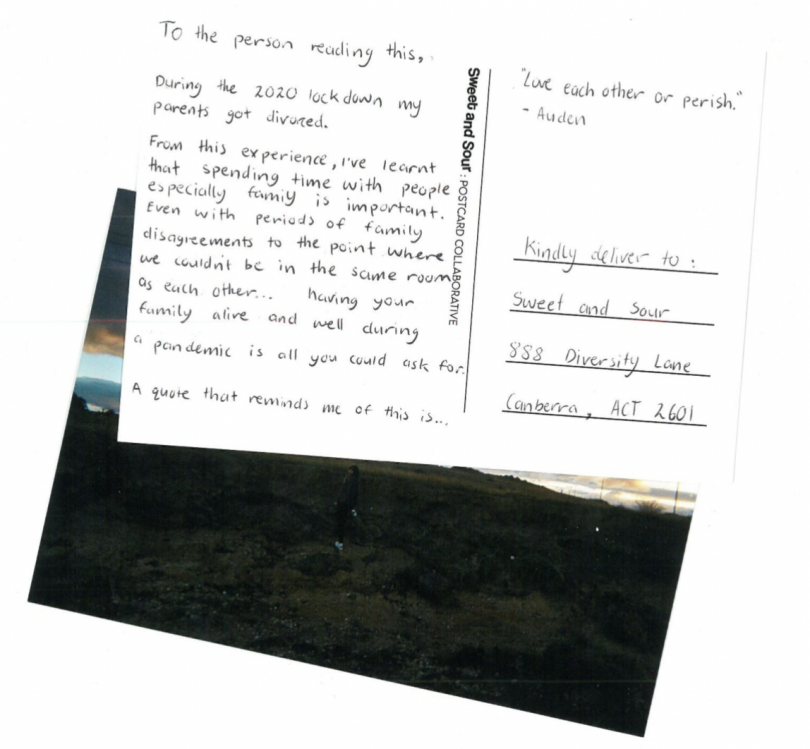 To the person reading this,
During the 2020 lockdown my
parents got divorced.
From this experience, I've learnt
that spending time with people
especially family is important.
Even with periods of family
disagreements to the point where
we couldn't be in the same room
as each other... having your
family alive and well during
a pandemic is all you could ask for.
A quote that reminds me of this is...
Sweet and Sour: POSTCARD COLLABORATIVE
"Love each other or perish."
- Auden
Kindly deliver to:
Sweet and Sour
888 Diversity Lane
Canberra, ACT 2601